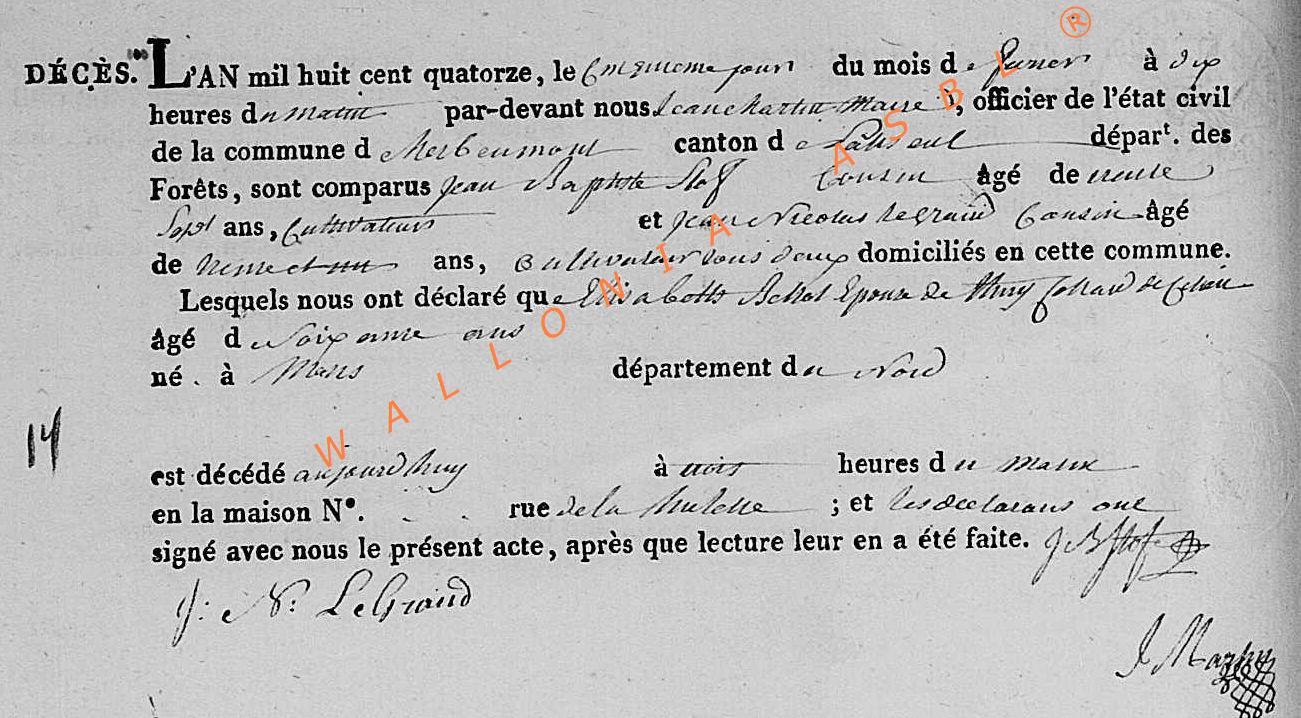 DÉCÈS. L'AN mil huit cent quatorze, le cinquieme jour du mois de à dix
heures du matin par-devant nous Jean Maire, officier de l'état civil
de la commune d herbeumont canton de départ. des
Forêts, sont comparus Jean Baptiste Stof Cousin âgé de trente
Sept ans, Cultivateur et Jean Nicolas Legrand Cousin âgé
de ans, Cultivateur tous deux domiciliés en cette commune.
Lesquels nous ont déclaré que Elisabeth Epouse de
âgé de Soixante ans
né à département du Nord
14
est décédé aujourdhuy à trois heures du matin
en la maison N°. rue de la ; et les declarans ont
signé avec nous le présent acte, après que lecture leur en a été faite. J B Stof
J: N: LeGrand
J
WALLONIA ASBL ®